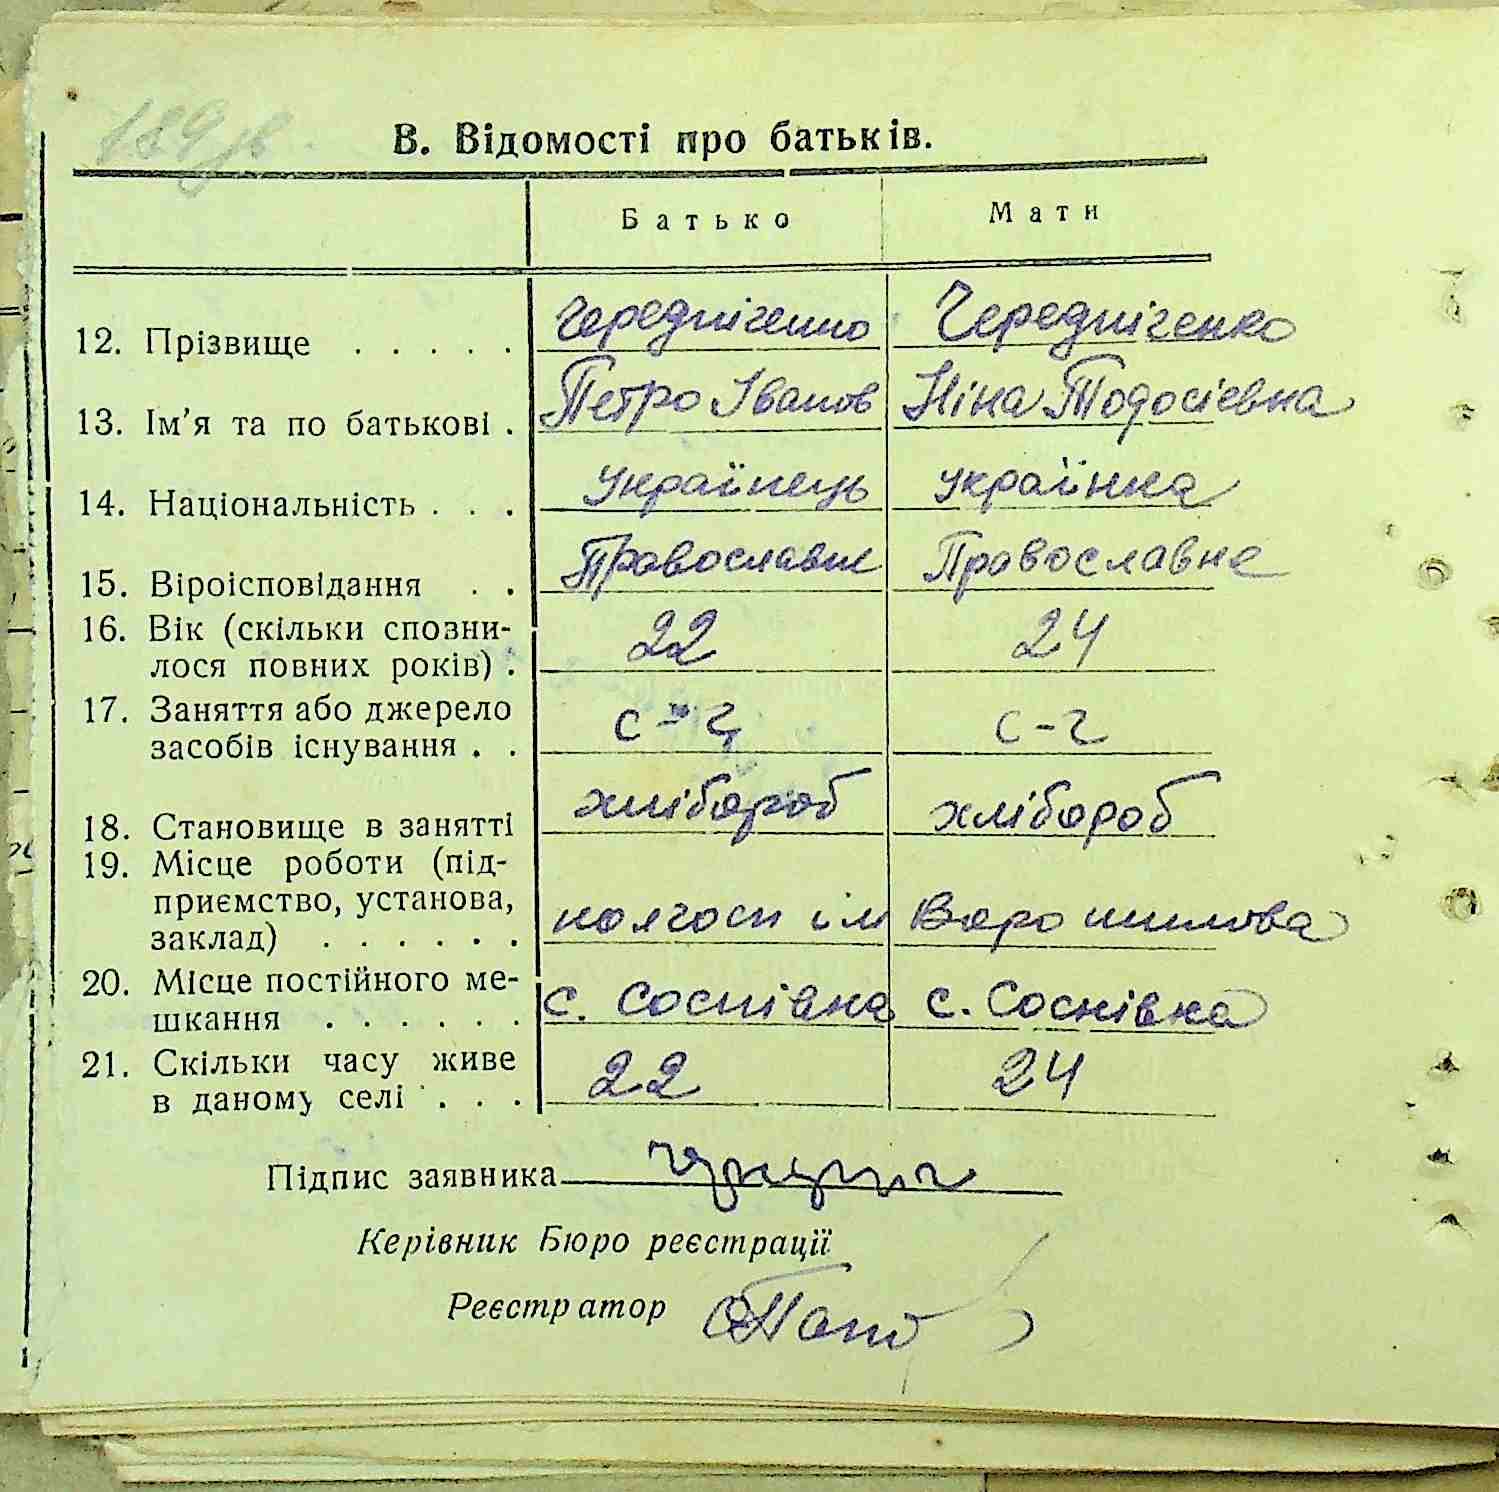 189 зв.
В. Відомості про батьків.
Батько Мати
12. Прізвище . . . . . Чередніченко Чередніченко
13. Ім'я та по батькові . Петро Іванов Ніна Тодосієвна
14. Національність . . . Українець українка
15. Віроісповідання . . Православне Православне
16. Вік (скільки спозни-
лося повних років) . 22 24
17. Заняття або джерело
засобів існування . . с-г с-г
18. Становище в занятті хлібороб хлібороб
19. Місце роботи (під-
приємство, установа,
заклад) . . . . . . колгосп ім Ворошилова
20. Місце постійного ме-
шкання . . . . . . с. Соснівка с. Соснівка
21. Скільки часу живе
в даному селі . . . 22 24
Підпис заявника
Керівник Бюро реєстрації
Реєстратор